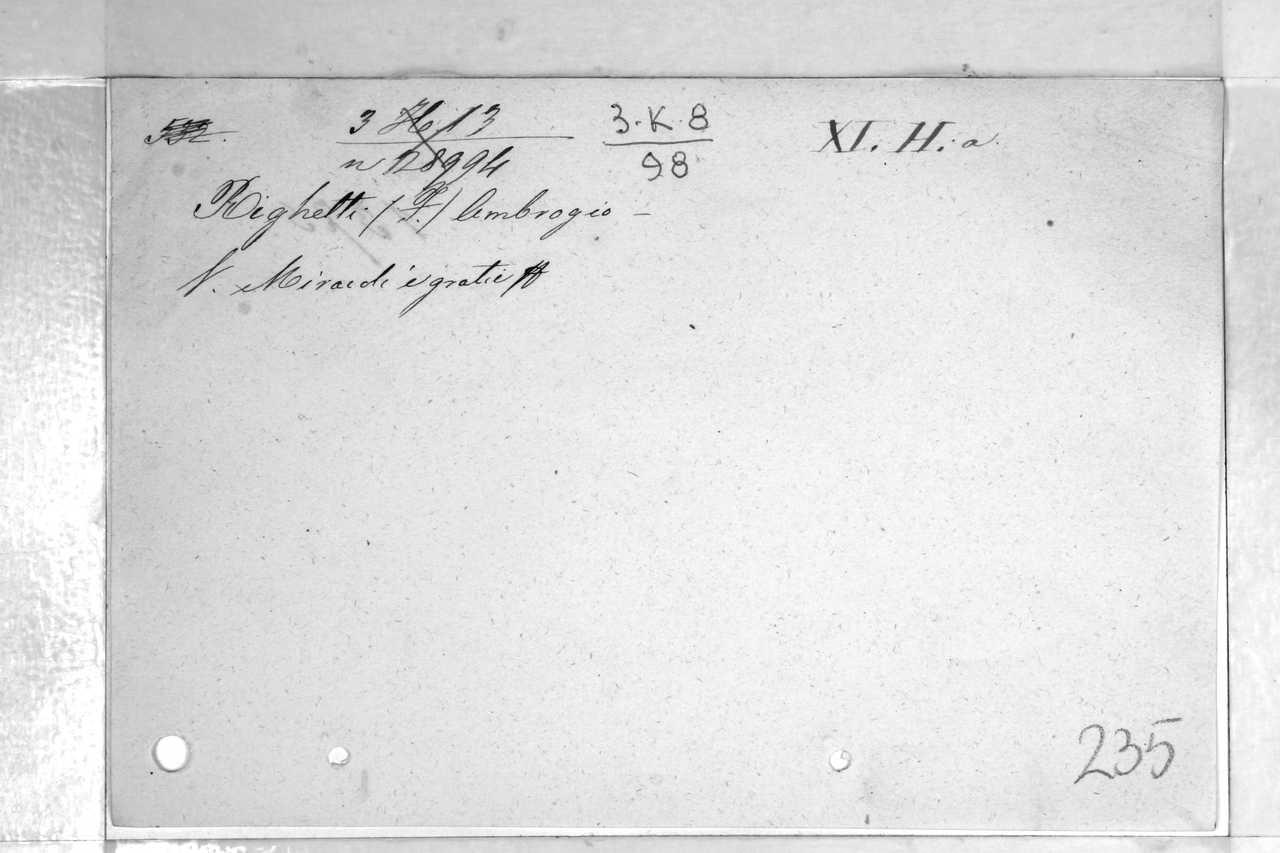 3 H 13 3. K. 8 XI. H. a.
n 128994 98
Righetti (P.) Ambrogio —
V. Miracoli e gratie
235